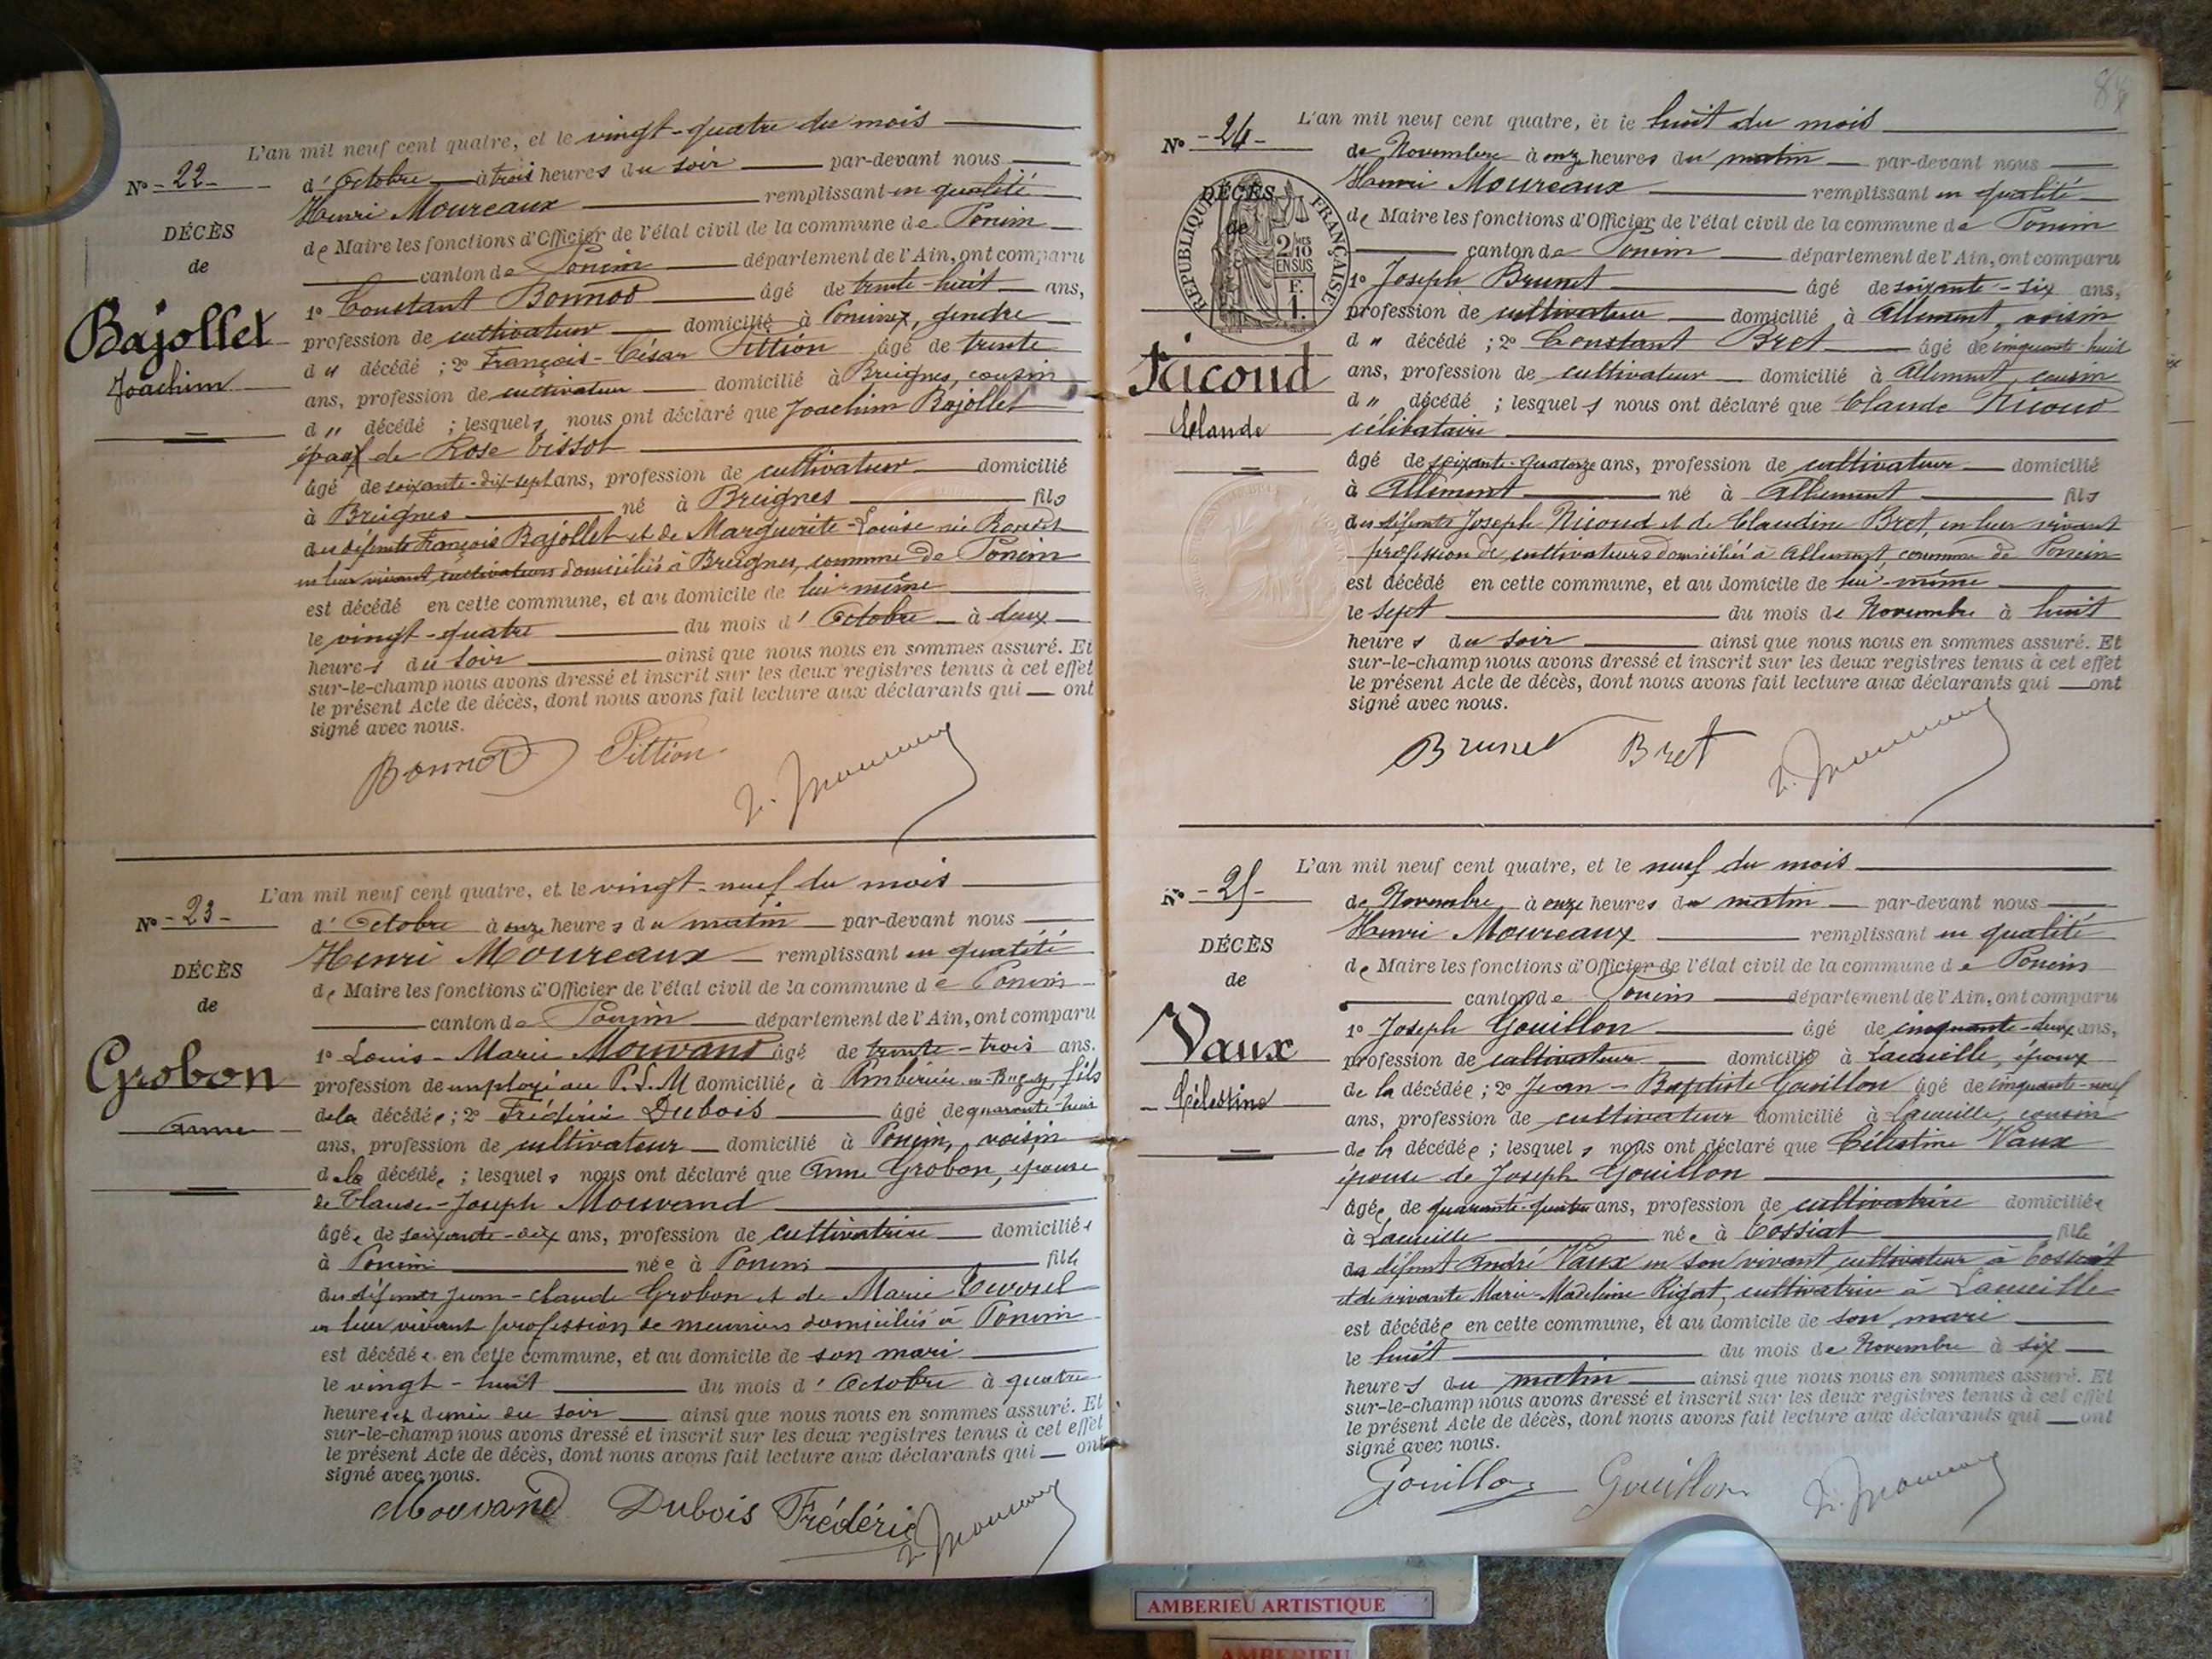 L'an mil neuf cent quatre, et le vingt-quatre du mois
N° - 22 -
d'Octobre à trois heures du soir par-devant nous
Henri Moureaux remplissant en qualité
DÉCÈS
de Maire les fonctions d'Officier de l'état civil de la commune de Poncin
de
canton de Poncin département de l'Ain, ont comparu
1° Constant Bonnod âgé de trente-huit ans,
Bajollet
profession de cultivateur domicilié à gendre
Joachim
du décédé ; 2° François-César Pittion âgé de trente
ans, profession de cultivateur domicilié à Breignes, cousin
du décédé ; lesquels nous ont déclaré que Joachim Bajollet
époux de Rose Tissot
âgé de soixante-dix-sept ans, profession de cultivateur domicilié
à Breignes né à Breignes fils
des défunts François Bajollet et de Marguerite-Louise née
en leur vivant cultivateurs domiciliés à Breignes, commune de Poncin
est décédé en cette commune, et au domicile de lui-même
le vingt-quatre du mois d'Octobre à deux
heures du soir ainsi que nous nous en sommes assuré. Et
sur-le-champ nous avons dressé et inscrit sur les deux registres tenus à cet effet
le présent Acte de décès, dont nous avons fait lecture aux déclarants qui ont
signé avec nous.
Bonnod Pittion
L'an mil neuf cent quatre, et le vingt-neuf du mois
N° - 23 -
d'Octobre à onze heures du matin par-devant nous
Henri Moureaux remplissant en qualité
DÉCÈS
de Maire les fonctions d'Officier de l'état civil de la commune de Poncin
de
canton de Poncin département de l'Ain, ont comparu
1° Louis-Marie Mouvand âgé de trente-trois ans.
Grobon
profession de employé au P.L.M domicilié à Ambérieu-en-Bugey, fils
Anne
de la décédée ; 2° Frédéric Dubois âgé de quarante-huit
ans, profession de cultivateur domicilié à Poncin, voisin
de la décédée ; lesquels nous ont déclaré que Anne Grobon, épouse
de Claude-Joseph Mouvand
âgée de soixante-dix ans, profession de cultivatrice domiciliée
à Poncin née à Poncin fille
des défunts Jean-Claude Grobon et de Marie
en leur vivant profession de meuniers domiciliés à Poncin
est décédée en cette commune, et au domicile de son mari
le vingt-huit du mois d'Octobre à quatre
heures et demie du soir ainsi que nous nous en sommes assuré. Et
sur-le-champ nous avons dressé et inscrit sur les deux registres tenus à cet effet
le présent Acte de décès, dont nous avons fait lecture aux déclarants qui ont
signé avec nous.
Mouvand Dubois Frédéric
L'an mil neuf cent quatre, et le huit du mois
N° - 24 -
de Novembre à onze heures du matin par-devant nous
DÉCÈS
Henri Moureaux remplissant en qualité
RÉPUBLIQUE FRANÇAISE
de
2/10 EN SUS
F. 1.
de Maire les fonctions d'Officier de l'état civil de la commune de Poncin
canton de Poncin département de l'Ain, ont comparu
1° Joseph Brunet âgé de soixante-six ans,
profession de cultivateur domicilié à Allement, voisin
du décédé ; 2° Constant Bret âgé de cinquante-huit
Nicoud
ans, profession de cultivateur domicilié à Allement, cousin
du décédé ; lesquels nous ont déclaré que Claude Nicoud
Claude
célibataire
âgé de soixante-quatorze ans, profession de cultivateur domicilié
à Allement né à Allement fils
des défunts Joseph Nicoud et de Claudine Bret, en leur vivant
profession de cultivateurs domiciliés à Allement, commune de Poncin
est décédé en cette commune, et au domicile de lui-même
le sept du mois de Novembre à huit
heures du soir ainsi que nous nous en sommes assuré. Et
sur-le-champ nous avons dressé et inscrit sur les deux registres tenus à cet effet
le présent Acte de décès, dont nous avons fait lecture aux déclarants qui ont
signé avec nous.
Brunet Bret
L'an mil neuf cent quatre, et le neuf du mois
N° - 25 -
de Novembre à onze heures du matin par-devant nous
Henri Moureaux remplissant en qualité
DÉCÈS
de Maire les fonctions d'Officier de l'état civil de la commune de Poncin
de
canton de Poncin département de l'Ain, ont comparu
1° Joseph Gouillon âgé de cinquante-deux ans,
Vaux
profession de cultivateur domicilié à époux
Célestine
de la décédée ; 2° Jean-Baptiste Gouillon âgé de cinquante-neuf
ans, profession de cultivateur domicilié à cousin
de la décédée ; lesquels nous ont déclaré que Célestine Vaux
épouse de Joseph Gouillon
âgée de quarante-quatre ans, profession de cultivatrice domiciliée
à née à Bossiat fille
du défunt André Vaux en son vivant cultivateur à Bossiat
et de vivante Marie-Madeleine Rigat, cultivatrice à
est décédée en cette commune, et au domicile de son mari
le huit du mois de Novembre à six
heures du matin ainsi que nous nous en sommes assuré. Et
sur-le-champ nous avons dressé et inscrit sur les deux registres tenus à cet effet
le présent Acte de décès, dont nous avons fait lecture aux déclarants qui ont
signé avec nous.
Gouillon Gouillon
AMBERIEU ARTISTIQUE
AMBERIEU